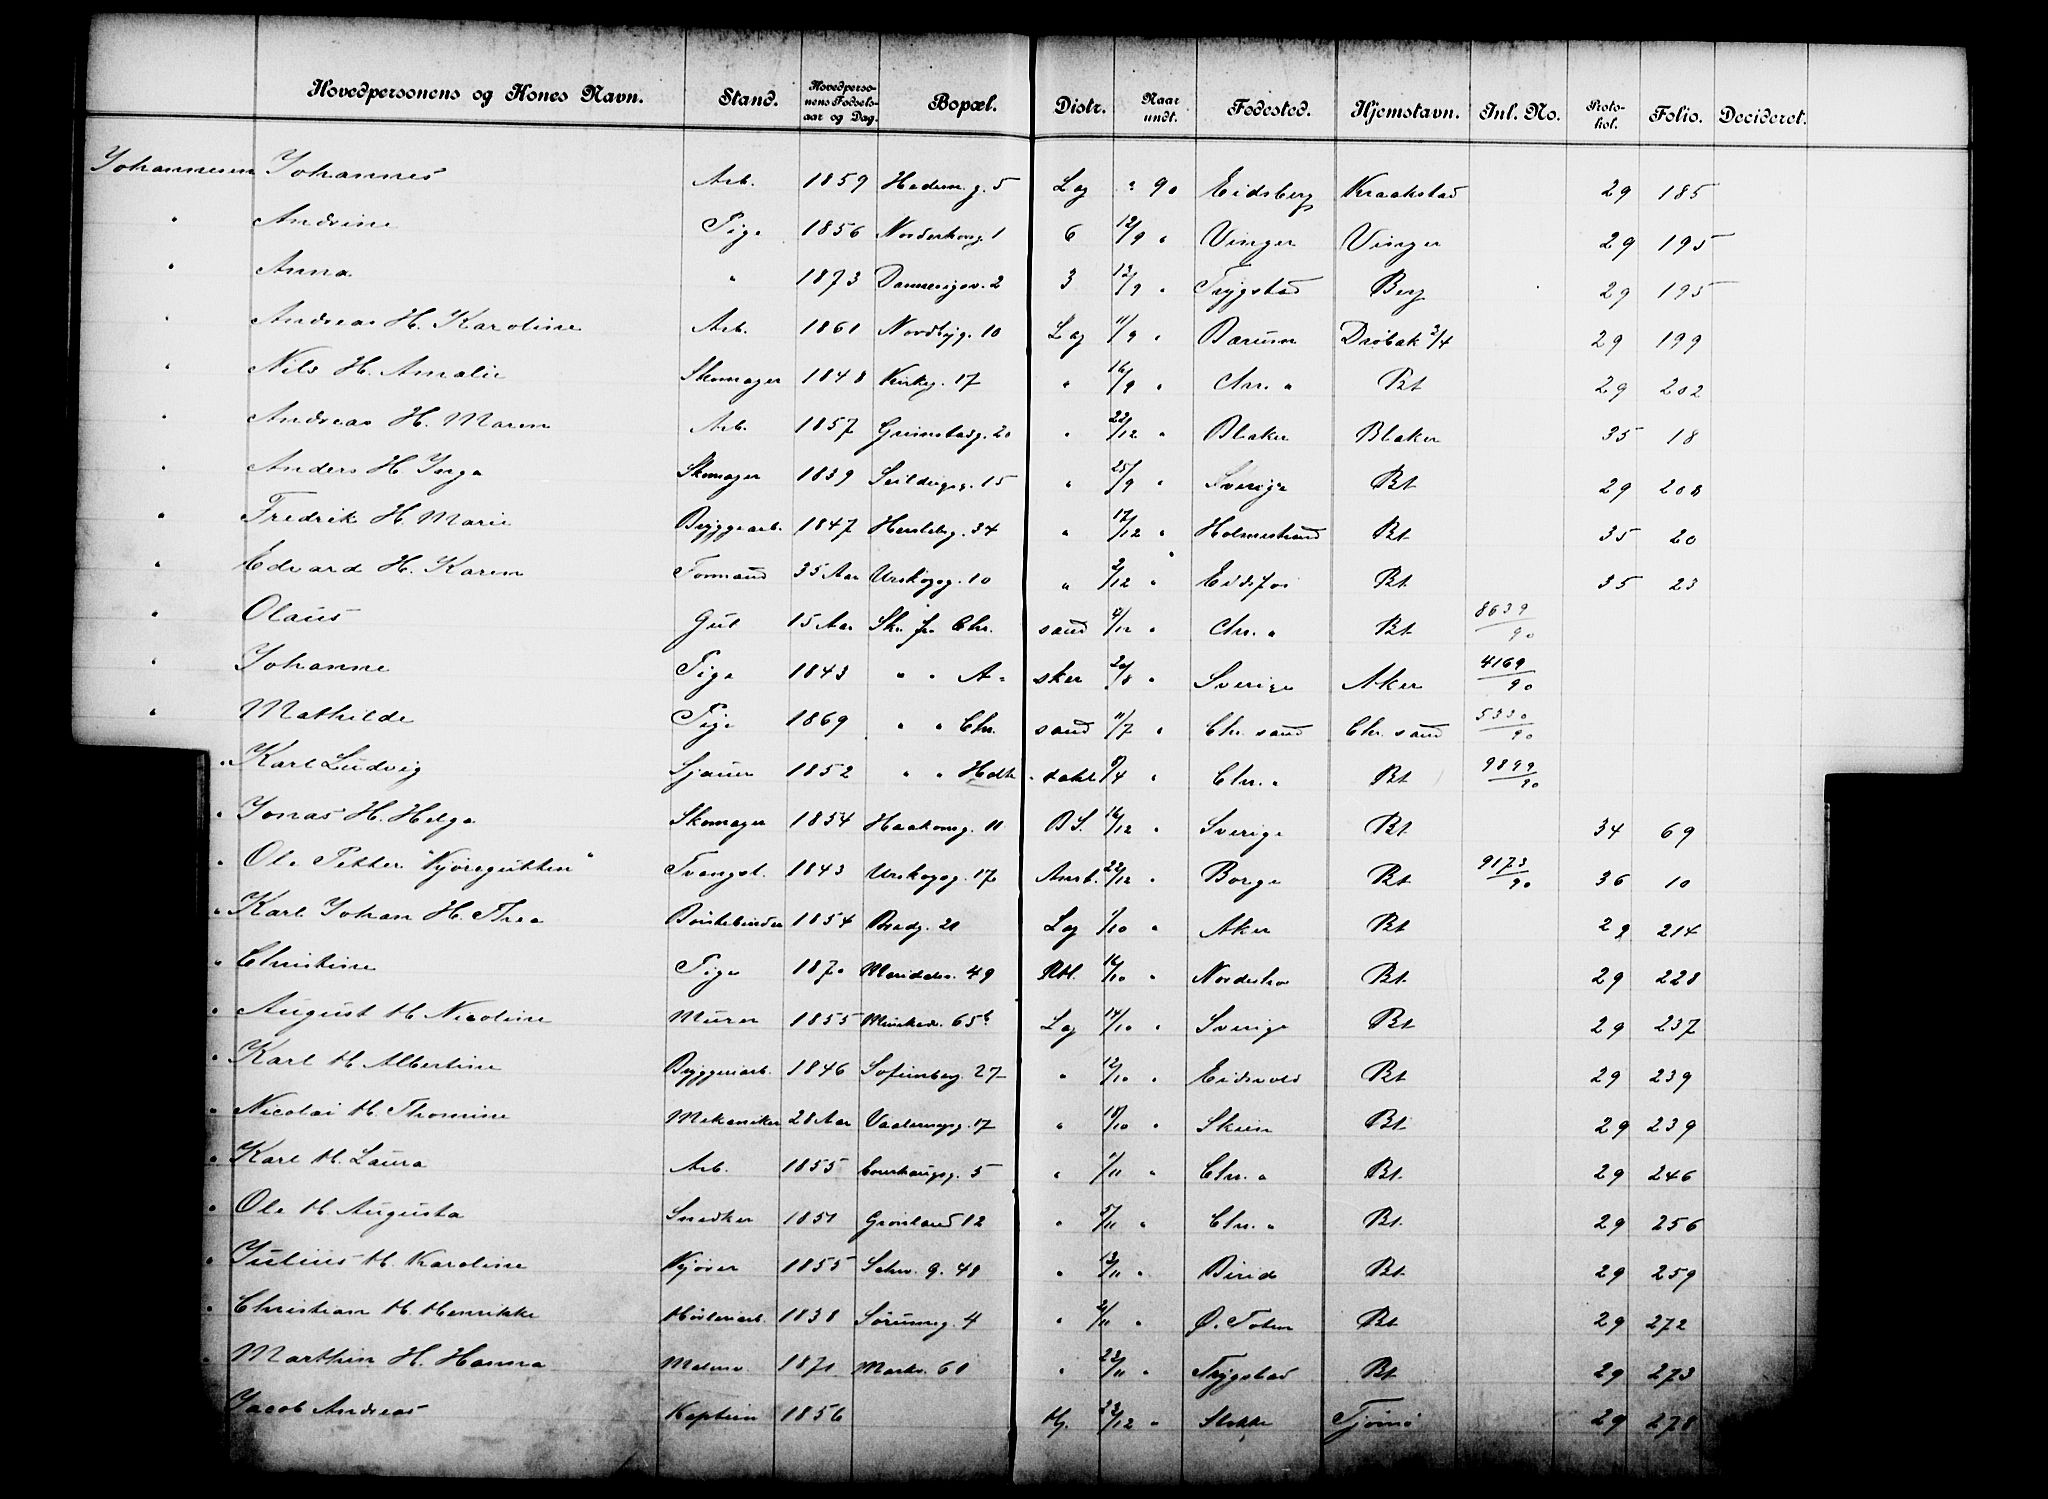 Hovedpersonens og Kones Navn. Stand. Hovedpersonens Fødselsaar og Dag. Bopæl. Distr. Naar undt. Fødested. Hjemstavn. Inl. No. Protokol. Folio. Decideret.
Johannesen Johannes Arb. 1859 g. 5 Lag " 90 Eidsberg Kraakstad 29 185
" Andrine Pige 1856 1 6 12/9 " Vinger Vinger 29 195
" Anna " 1873 2 3 12/9 " Trygstad Berg 29 195
" Andreas H. Karoline Arb. 1861 Nordbyg. 10 Lag 11/9 " Bærum Drøbak 3/4 29 199
" Nils H. Amalie Skomager 1848 Kirkeg. 17 " 16/9 " Chr. a Bt 29 202
" Andreas H. Maren Arb. 1857 Grimstadg. 20 " 22/12 " Blaker Blaker 35 18
" Anders H. Inga Skomager 1839 Seildugsg. 15 " 25/9 " Sverige Bt 29 208
" Fredrik H. Marie Bryggearb. 1847 Herslebg. 34 " 17/12 " Holmestrand Bt 35 20
" Edvard H. Karen Formand 35 Aar Urskogg. 10 " 2/12 " Eidsfos Bt 35 23
" Olaus Gut 15 Aar Skr. fr. Chr. sand /12 " Chr. a Bt 8639/90
" Johanne Pige 1843 " " A- sker 20/8 " Sverige Aker 4169/90
" Mathilde Pige 1869 " " Chr. sand 11/7 " Chr. sand Chr. sand 5330/90
" Karl Ludvig Sjauer 1852 " " 8/4 " Chr. a Bt 9899/90
" Jonas H. Helga Skomager 1854 Haakonsg. 11 BS. 16/12 " Sverige Bt 34 69
" Ole Petter "Kjøregutten" Tvangst. 1843 Urskogsg. 17 Anst. 22/12 " Borge Bt 9173/90 36 10
" Karl Johan H. Thea Børstebinder 1854 Bredg. 21 Lag 1/10 " Aker Bt 29 214
" Christine Pige 1870 Maridalsv. 49 Rtl. 16/10 " Nordstrø Bt 29 228
" August H. Nicoline Murer 1855 65 b Lag 14/10 " Sverige Bt 29 237
" Karl H. Albertine Bryggeriarb. 1846 Sofienberg. 27 " 12/10 " Eidsvold Bt 29 239
" Nicolai H. Thomine Mekaniker 28 Aar Vaalerengg. 17 " 18/10 " Skien Bt 29 239
" Karl H. Laura Arb. 1855 Enerhaugsg. 5 " 1/11 " Chr. a Bt 29 246
" Ole H. Augusta Snedker 1851 Grønland 12 " 5/11 " Chr. a Bt 29 256
" Julius H. Karoline Kjører 1855 Schw. g. 48 " 13/11 " Birid Bt 29 259
" Christian H. Henrikke Høvleriarb. 1838 Sørumsg. 4 " 2/11 " Ø. Toten Bt 29 272
" Marthin H. Hanna 1871 Markv. 61 " 22/11 " Trygstad Bt 29 273
Jacob Andreas Kaptein 1856 Hj. 22/12 " Stokke Tjømø 29 278